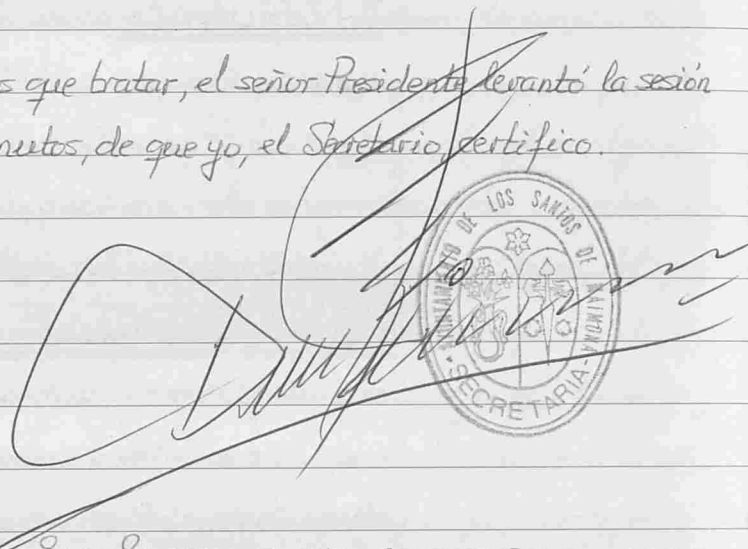 s que tratar, el señor Presidente levantó la sesión
nutos, de que yo, el Secretario, certifico.
AYUNTAMIENTO DE LOS SANTOS DE MAIMONA
-SECRETARIA-